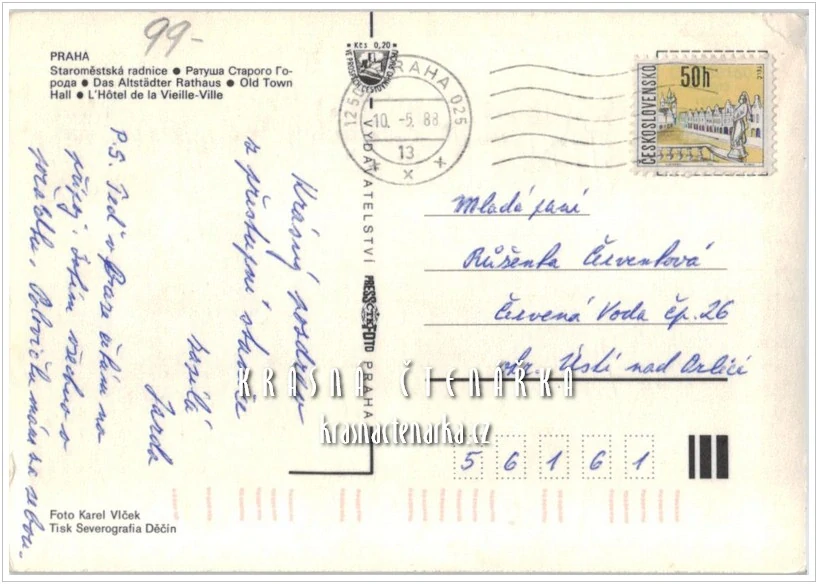 99-
PRAHA
Staroměstská radnice ● Ратуша Старого Го-
рода ● Das Altstädter Rathaus ● Old Town
Hall ● L'Hôtel de la Vieille-Ville
Kčs 0,20
PRAHA 025
-10. -5. 88
13
ČESKOSLOVENSKO
50h
VYDAVATELSTVÍ PRESSFOTO PRAHA
Krásný pozdrav
z přestupní stanice
zasílá
Jarda
P.S. Teď v Praze čekám na
přípoj. Jinak všechno v
pořádku. Polovičku mám za sebou.
Mladá paní
Růženka Červenková
Červená Voda čp. 26
okr. Ústí nad Orlicí
5 6 1 6 1
KRÁSNÁ ČTENÁŘKA
krasnactenarka.cz
Foto Karel Vlček
Tisk Severografia Děčín